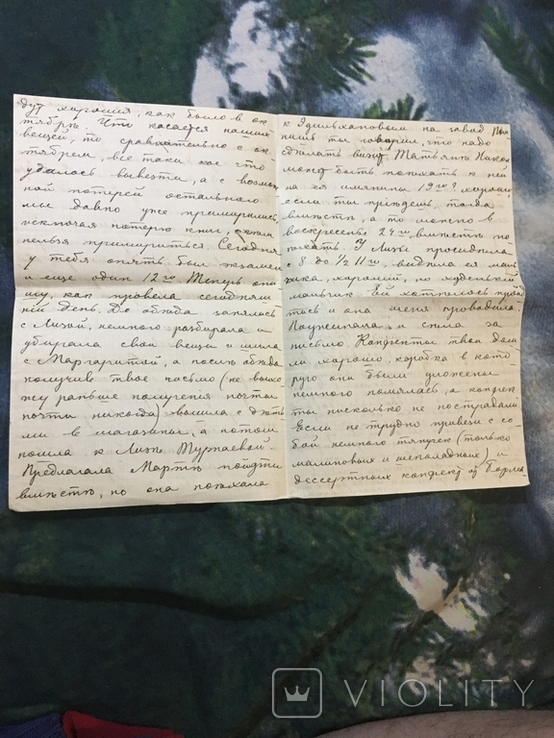 дут хорошия, как было в ок
тябрѣ. Что касается наших
вещей, то сравнительно с ок
тябрем, все таки кое что
удалось вывезти, а с возмож
ной потерей остального
мы давно уже примирились,
исключая потерю книг, с этим
нельзя примириться Сегодня
у тебя опять был экзамен
и еще один 12го Теперь опи
шу, как провела сегодняш
ний день. До обѣда занялась
с Лизой, немного разбирала и
убирала свои вещи и шила
с Маргаритой, а послѣ обѣда
получив твое письмо (не выхо
жу раньше получения почты
почти никогда) ходила с дѣть
ми в магазины, а потом
пошла к Лизѣ Туртаевой.
Предлагала Мартѣ пойдти
вмѣстѣ, но она поѣхала
к на завод По
мниш ты говорил, что надо
сдѣлать визит Татьянѣ Никол
может быть поѣхать к ней
на ея имянины 19го? хорошо
если ты приѣдешь, тогда
вмѣстѣ, а то можно в
воскресенье 24го вмѣстѣ по
ѣхать. У Лизы просидѣла
с 8 до ½ 11го, видѣла ея маль
чика, хороший, но худенький
мальчик Ей хотѣлось
ться и она меня проводила.
Поужинала и сѣла за
письмо. Конфекты твои дош
ли хорошо, коробка в кото
рую они были уложены
немного помялась, а конфек
ты нисколько не пострадали
Если не трудно привези с со
бой немного тянучек (только
малиновых и шеколадных) и
десертных конфект из
VIOLITY